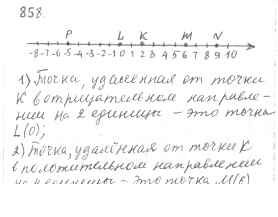 858.
P L K M N
-8 -7 -6 -5 -4 -3 -2 -1 0 1 2 3 4 5 6 7 8 9 10
1) Точка, удаленная от точки
К в отрицательном направле-
нии на 2 единицы - это точка
L(0);
2) Точка, удалённая от точки К
в положительном направлении
на 4 единицы - это точка М(6)